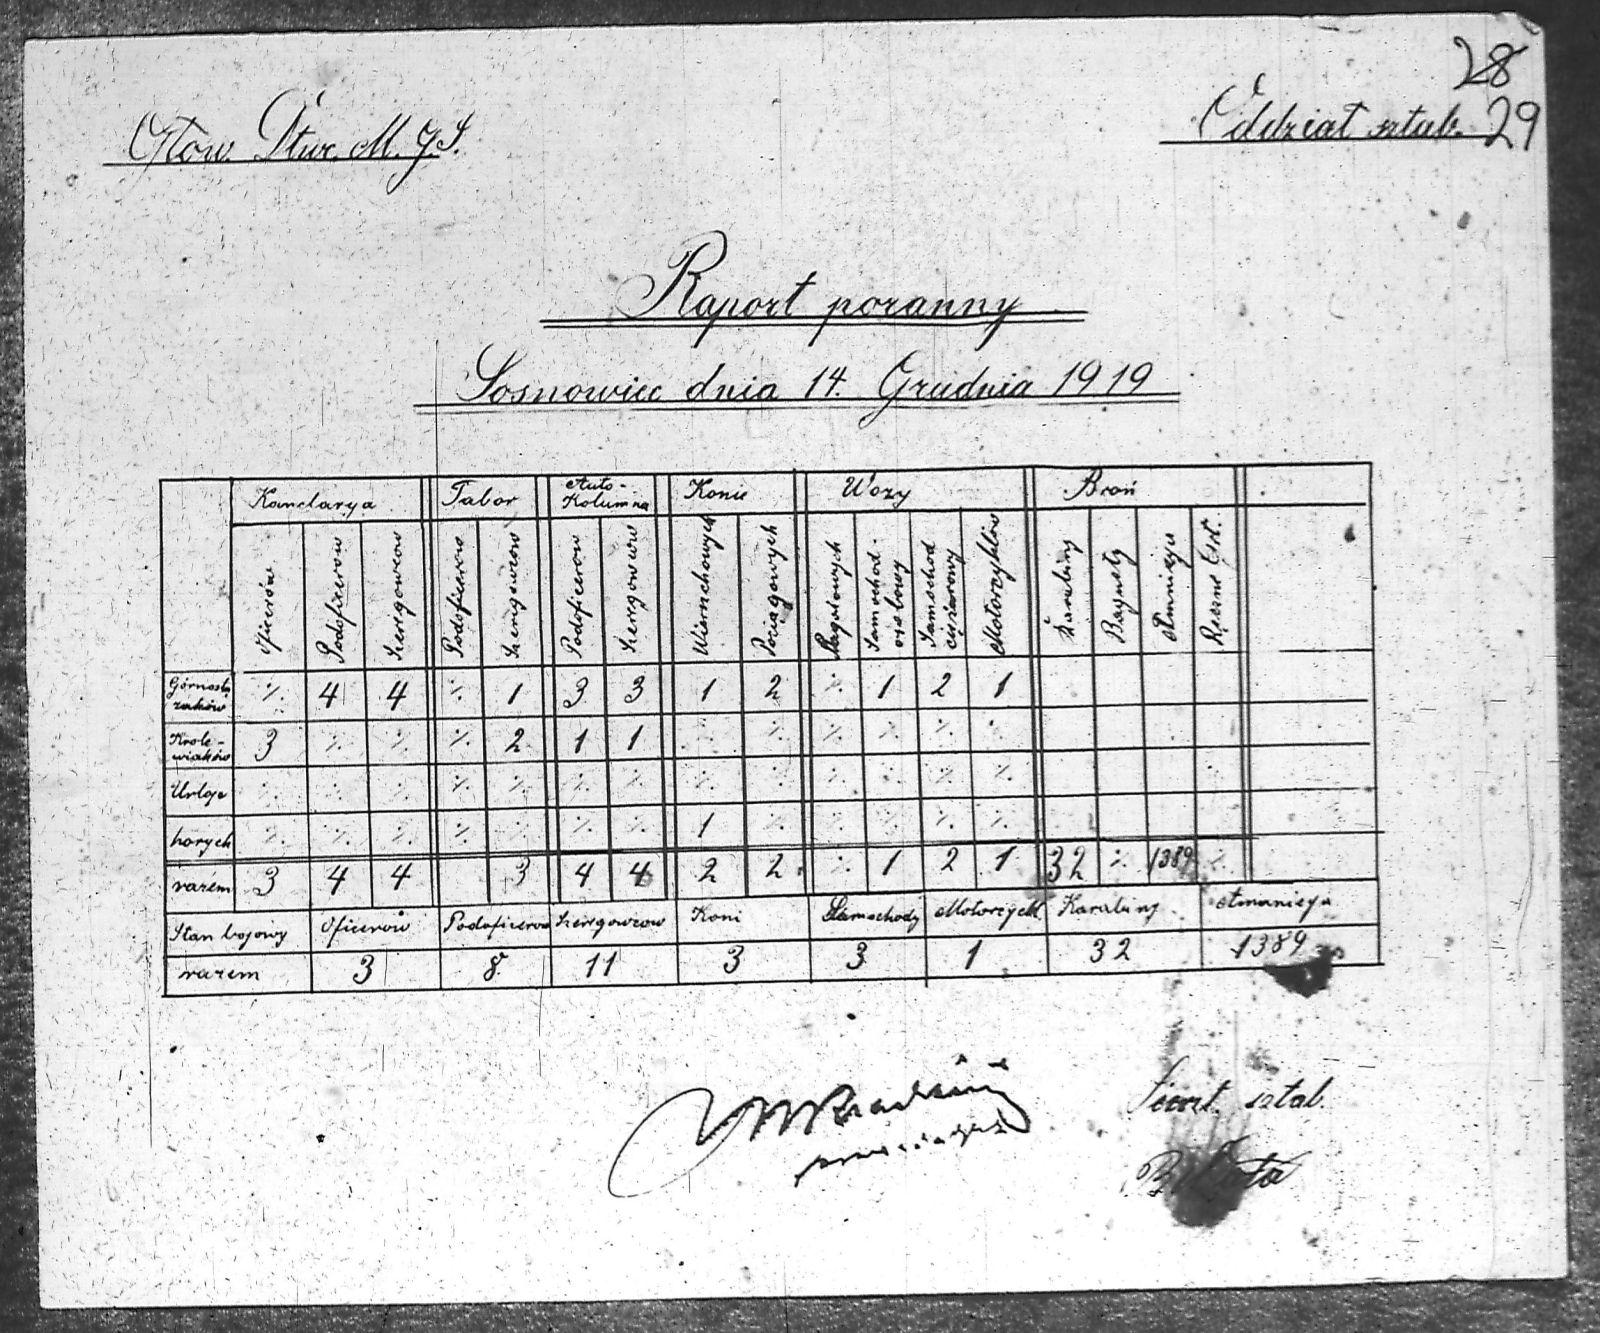 28
29
Głow. Dtwe. M. G. S.
Oddział sztab.
Raport poranny
Sosnowiec dnia 14. Grudnia 1919
Kanclarya Tabor Auto-Kolumna Konie Wozy Broń
Oficerów Podoficerów Szeregowców Podoficerów Szeregowców Podoficerów Szeregowców Wierzchowych Pociągowych Samochod osobowy Samochod ciężarowy Motorzyklów Karabiny Bagnety Amunicya
Górnoślązaków ·/. 4 4 ·/. 1 3 3 1 2 ·/. 1 2 1
Krolewiaków 3 ·/. ·/. ·/. 2 1 1 ·/. ·/. ·/. ·/. ·/. ·/.
Urlop ·/. ·/. ·/. ·/. ·/. ·/. ·/. ·/. ·/. ·/. ·/. ·/. ·/.
horych ·/. ·/. ·/. ·/. ·/. ·/. ·/. 1 ·/. ·/. ·/. ·/. ·/.
razem 3 4 4 3 4 4 2 2 ·/. 1 2 1 32 ·/. 1389 ·/.
Stan bojowy Oficerów Podoficerow Szeregowcow Koni Samochody Motorcykl. Karabiny Amunicya
razem 3 8 11 3 3 1 32 1389
sztab.